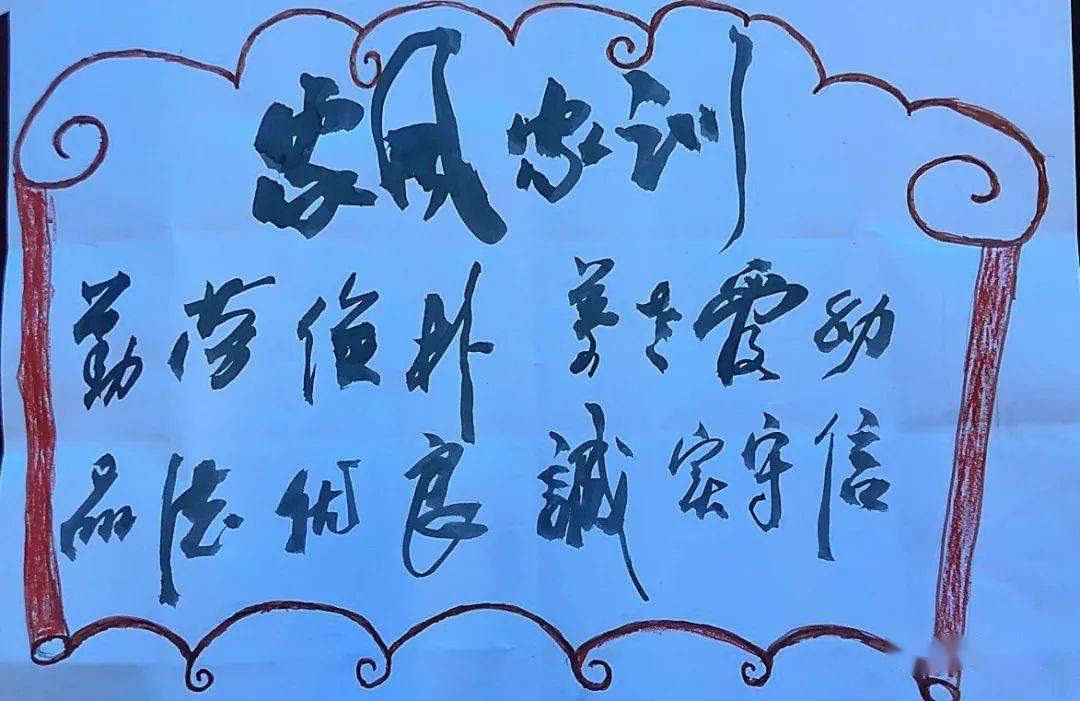 家风家训
勤劳俭朴 尊老愛幼
品德优良 誠实守信